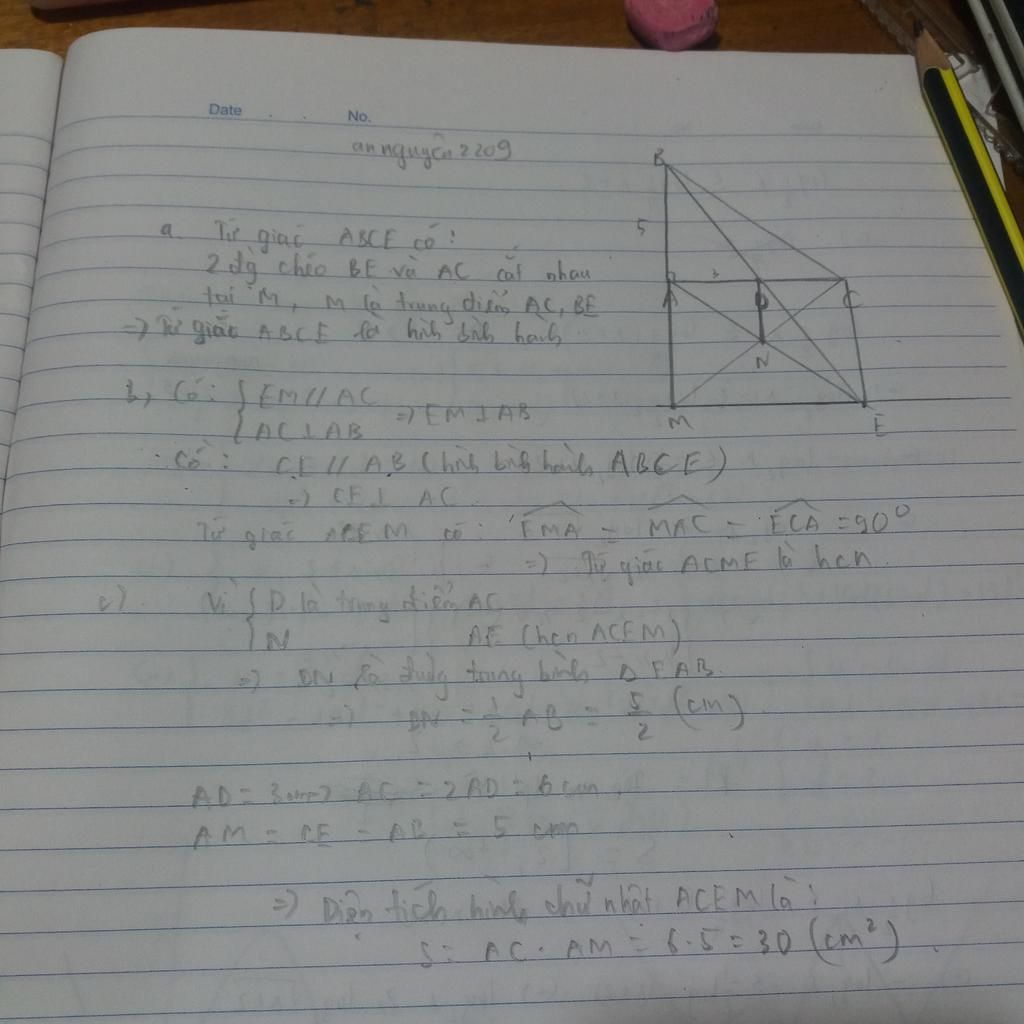 Date No.
an nguyễn 2209
B
5
a. Tứ giác ABCE có:
2 đg chéo BE và AC cắt nhau
tại M, M là trung điểm AC, BE
=> Tứ giác ABCE là hình bình hành
A 3 D C
N
M E
b, Có: { EM // AC
AC ⊥ AB => EM ⊥ AB
Có: CE // AB (hình bình hành ABCE)
=> CE ⊥ AC
Tứ giác ACEM có: EMA = MAC = ECA = 90°
=> Tứ giác ACME là hcn.
c) Vì { D là trung điểm AC
N AE (hcn ACEM)
=> DN là đường trung bình Δ EAB.
=> DN = 1/2 AB = 5/2 (cm)
AD = 3cm => AC = 2AD = 6 cm,
AM = CE = AB = 5 cm
=> Diện tích hình chữ nhật ACEM là:
S = AC . AM = 6.5 = 30 (cm²).